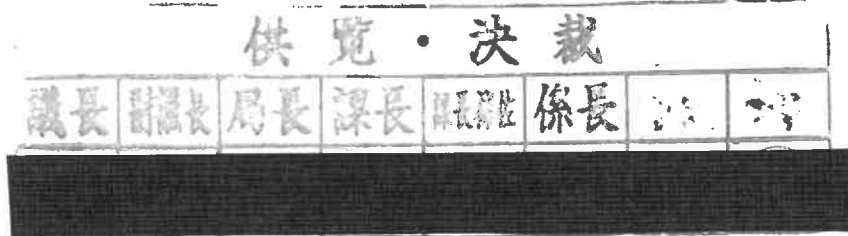 供覧・決裁
議長 副議長 局長 課長 課長補佐 係長